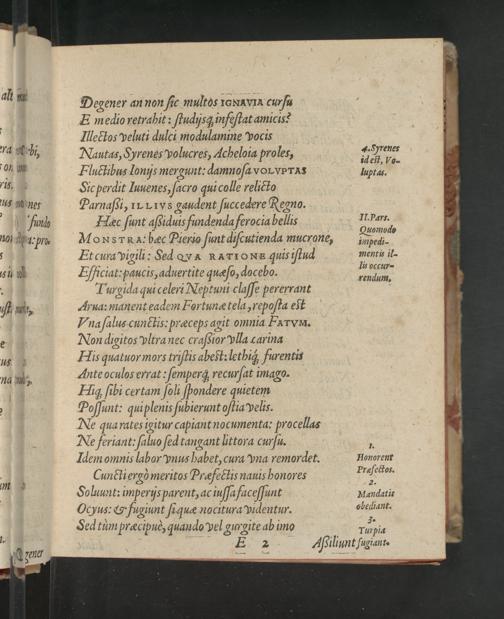 Degener an non sic multos IGNAVIA cursu
E medio retrahit: studijsq́; infestat amicis?
Illectos veluti dulci modulamine vocis
Nautas, Syrenes volucres, Acheloia proles,
Fluctibus Ionijs mergunt: damnosa VOLVPTAS
Sic perdit Iuuenes, sacro qui colle relicto
Parnaßi, ILLIVS gaudent succedere Regno.
Hæc sunt aßiduis fundenda ferocia bellis
MONSTRA: hæc Pierio sunt discutienda mucrone,
Et cura vigili: Sed QVA RATIONE quis istud
Efficiat: paucis, aduertite quæso, docebo.
Turgida qui celeri Neptuni classe pererrant
Arua: manent eadem Fortunæ tela, reposta est
Vna salus cunctis: præceps agit omnia FATVM.
Non digitos vltra nec craßior vlla carina
His quatuor mors tristis abest: lethiq́; furentis
Ante oculos errat: semperq́; recursat imago.
Hiq́; sibi certam soli spondere quietem
Possunt: qui plenis subierunt ostia velis.
Ne qua rates igitur capiant nocumenta: procellas
Ne feriant: saluo sed tangant littora cursu.
Idem omnis labor vnus habet, cura vna remordet.
Cuncti ergò meritos Præfectis nauis honores
Soluunt: imperijs parent, ac iussa facessunt
Ocyus: & fugiunt si quæ nocitura videntur.
Sed tùm præcipuè, quando vel gurgite ab imo
E 2
Aßiliunt
4. Syrenes
id est, Vo-
luptas.
II. Pars.
Quomodo
impedi-
mentis il-
lis occur-
rendum.
1.
Honorent
Præfectos.
2.
Mandatis
obediant.
3.
Turpia
fugiant.
gener